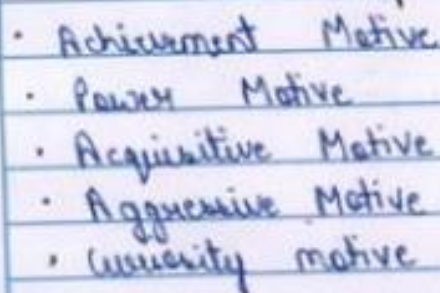 · Achievement Motive
· Power Motive
· Acquisitive Motive
· Aggressive Motive
· Curiosity motive